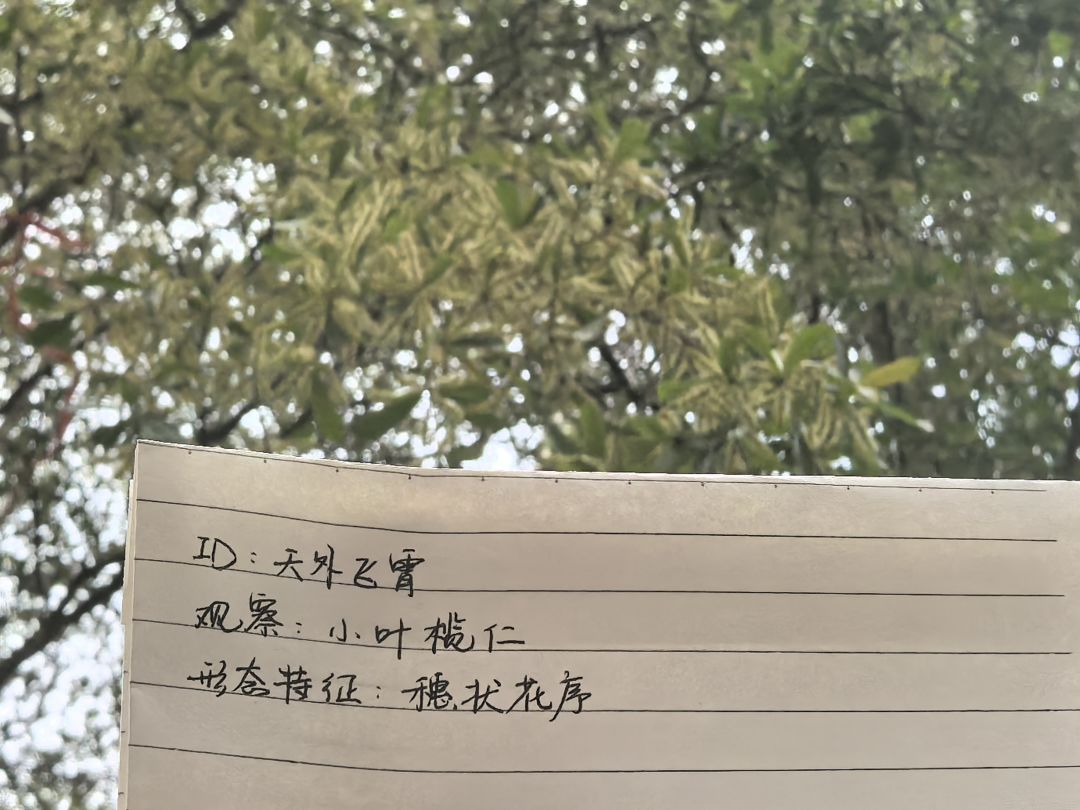 ID：天外飞霄
观察：小叶榄仁
形态特征：穗状花序